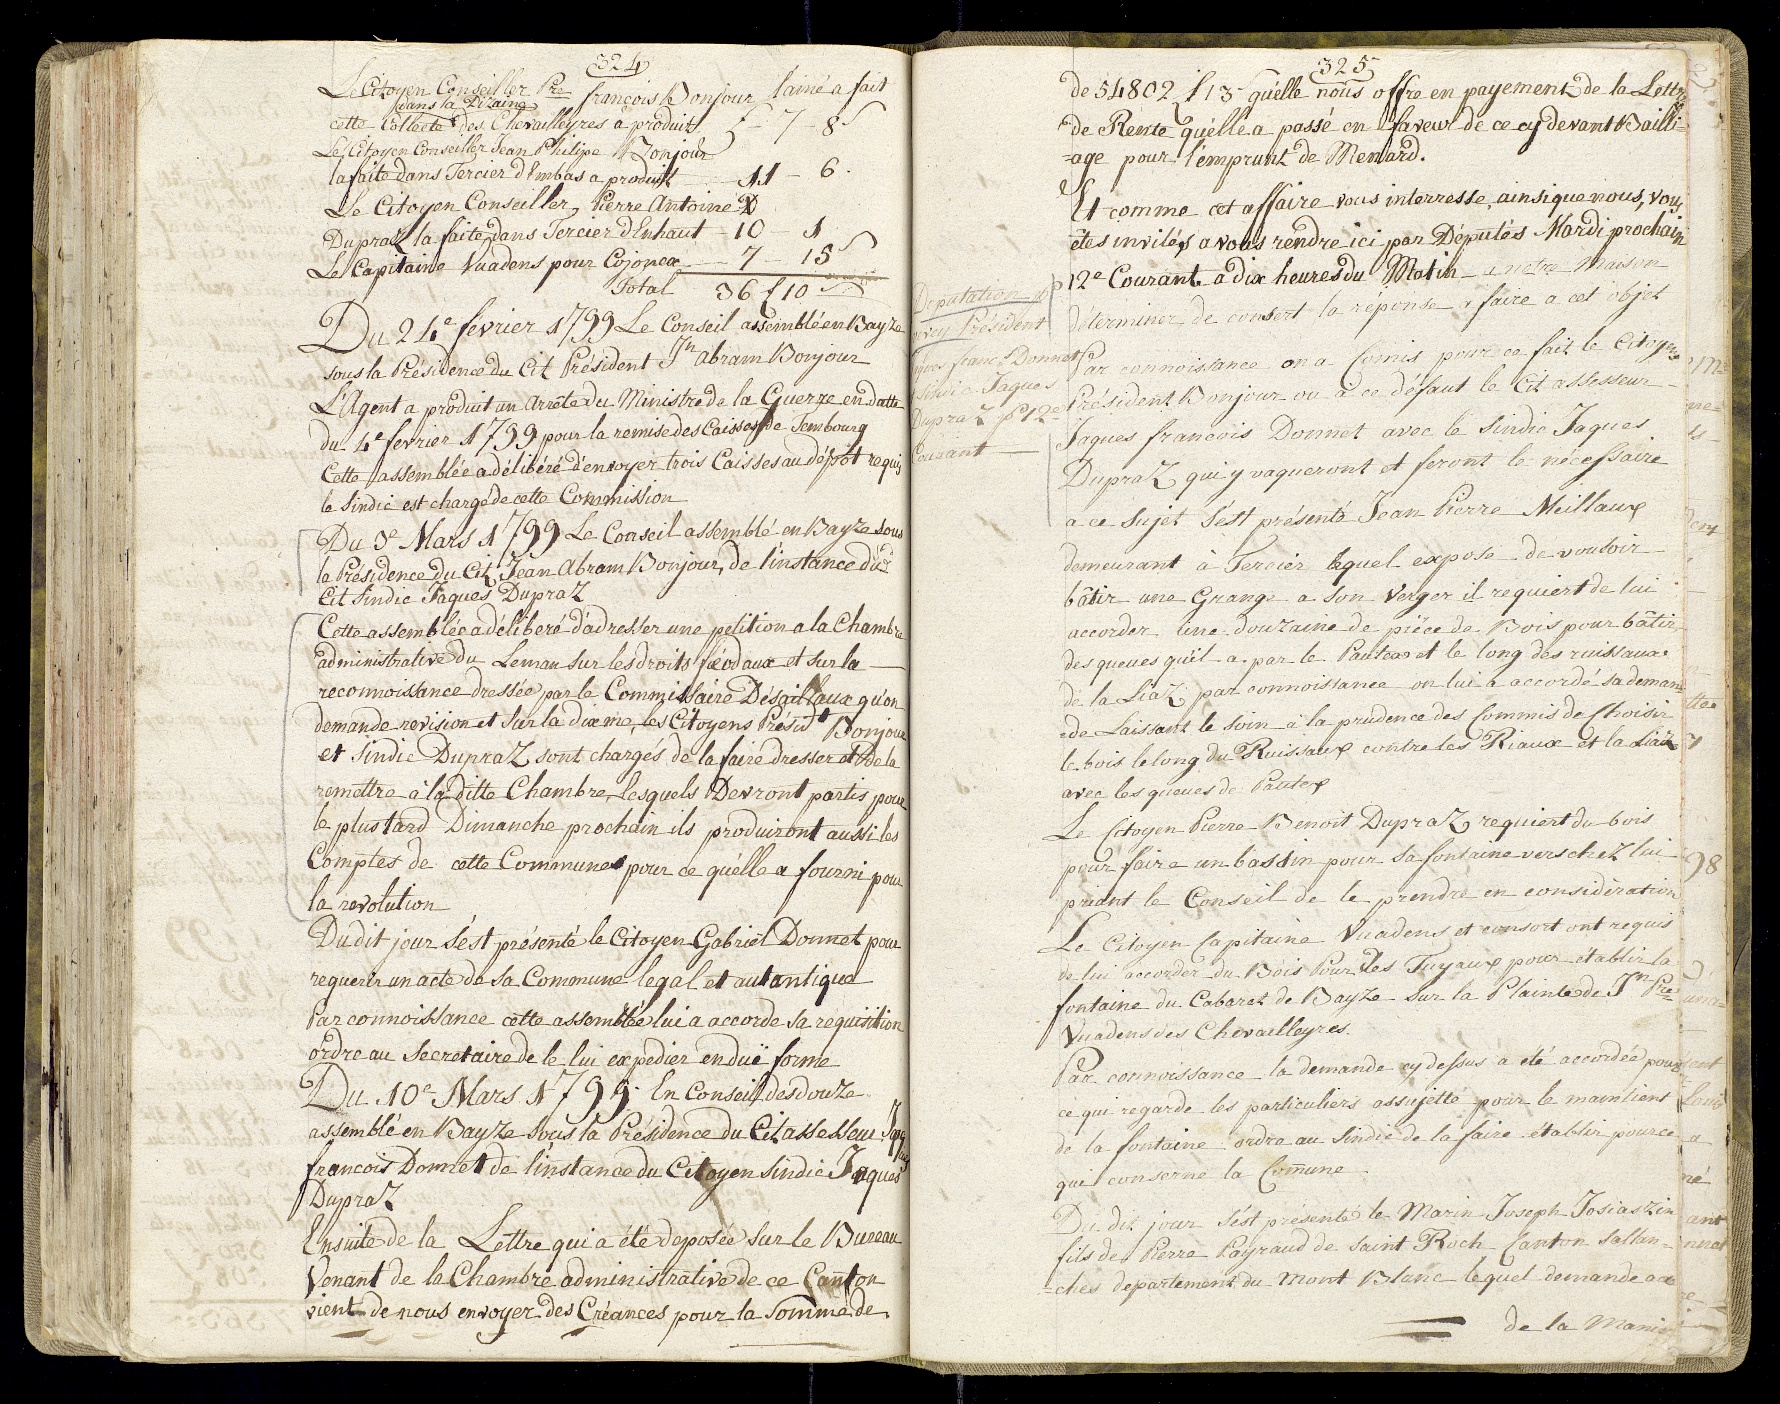 324
Le Citoyen Conseiller Pre françois Bonjour lainé a fait
dans la Dizaine
cette Collecte des Chevailleyres a produit 5 - 7 - 8
Le Citoyen Conseiller Jean Philipe Bonjour
la faite dans Tercier d'Embas a produit 11 - 6
Le Citoyen Conseiller Pierre Antoine
Dupraz la faite dans Tercier d'Enhaut - 10 - 1
Le Capitaine Vuadens pour Cojonex 7 - 15
Total 36 f 10
Du 24e février 1799 Le Conseil assemblé en Bayze
sous la Présidence du Cit Président Jn abram Bonjour
L'Agent a produit un Arrête du Ministre de la Guerre en datte
du 4e fevrier 1799 pour la remise des Caisses de Tembourg
Cette assemblée a délibéré d'envoyer trois Caisses au dépôt requis
le Sindic est chargé de cette Commission
Du 3e Mars 1799 Le Conseil assemblé en Bayze sous
la Présidence du Cit Jean Abram Bonjour, de l'instance du
Cit Sindic Jaques Dupraz
Cette assemblée a délibéré d'adresser une petition a la Chambre
administrative du Leman sur les droits féodaux et sur la
reconnoissance dressée par le Commissaire Désaillaux qu'on
demande revision et sur la dixme, les Citoyens Présidt Bonjour
et Sindic Dupraz sont chargés de la faire dresser et de la
remettre à la ditte Chambre, lesquels Devront partis pour
le plus tard Dimanche prochain ils produiront aussi les
Comptes de cette Commune pour ce qu'elle a fourni pour
la revolution
Du dit jour s'est présenté le Citoyen Gabriel Donnet pour
requerir un acte de sa Commune legal et autantique
Par connoissance cette assemblée lui a accorde sa requisition
ordre au Secretaire de le lui expedier en duë forme
Du 10e Mars 1799 En Conseil des douze
assemblé en Bayze sous la Présidence du Cit assesseur Jaques
francois Donnet de l'instance du Citoyen Sindic Jaques
Dupraz
Ensuite de la Lettre qui a été deposée sur le Bureau
Venant de la Chambre administrative de ce Canton
vient de nous envoyer des Créances pour la somme de
325
de 54802 f 13 qu'elle nous offre en payement de la Lettre
de Rente qu'elle a passé en faveur de ce cy devant Bailli-
-age pour l'emprunt de Menard.
Et comme cet affaire vous interresse, ainsi que nous, vous
êtes invités, a vous rendre ici par Députés Mardi prochain
12e Courant a dix heures du Matin a notre Maison
déterminer de consert la réponse a faire a cet objet
Deputation
Président
Jaques franc Donnet
Sindic Jaques
Dupraz pr 12e
Courant
Par connoissance on a Comis pour ce fait le Citoyen
Président Bonjour ou à ce défaut le Cit assesseur
Jaques francois Donnet avec le Sindic Jaques
Dupraz qui y vaqueront et feront le nécessaire
a ce sujet s'est présenté Jean Pierre Meillaux
demeurant à Tercier lequel expose de vouloir
bâtir une Grange a son Verger il requiert de lui
accorder une douzaine de pièce de Bois pour bâtir
des queues qu'il a par le Pautex et le long des ruissaux
de la Liaz par connoissance on lui a accordé sa deman
de Laissant le soin a la prudence des Commis de Choisir
le bois le long du Ruissaux contre les Riaux et la Liaz
avec les queues de Pautex
Le Citoyen Pierre Benoit Dupraz requiert du bois
pour faire un bassin pour sa fontaine vers chez lui
priant le Conseil de le prendre en considération
Le Citoyen Capitaine Vuadens et consort ont requis
de lui accorder du Bois Pour des Tuyaux pour établir la
fontaine du Cabaret de Bayze sur la Plainte de Jn Pre
Vuadens des Chevailleyres.
Par connoissance la demande cy dessus a été accordée pour
ce qui regarde les particuliers assujetté pour le maintiens
de la fontaine ordre au Sindic de la faire établir pour ce
qui conserne la Comune
Du dit jour s'est présenté le Marin Joseph Josias
fils de Pierre Payraud de Saint Roch Canton Sallan-
-ches departement du Mont Blanc lequel demande
de la Mani